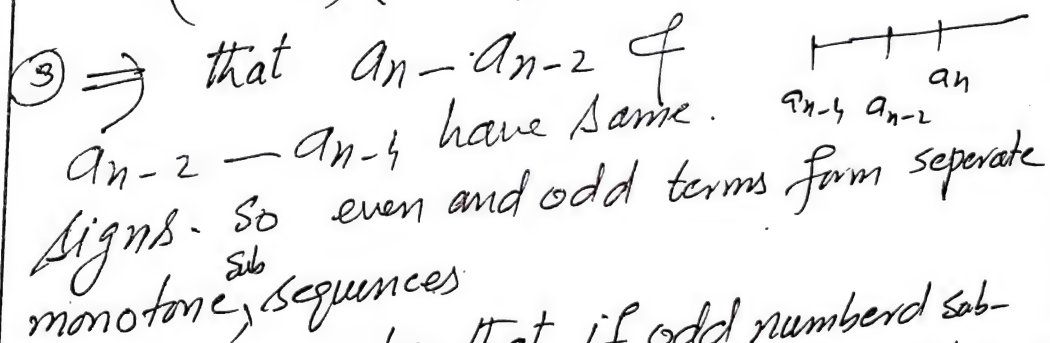 ③ ⇒ that an - an-2 &
an-2 - an-4 have same.
an-4 an-2 an
signs. So even and odd terms form seperate
monotone, sub sequences
that if odd numberd sub-